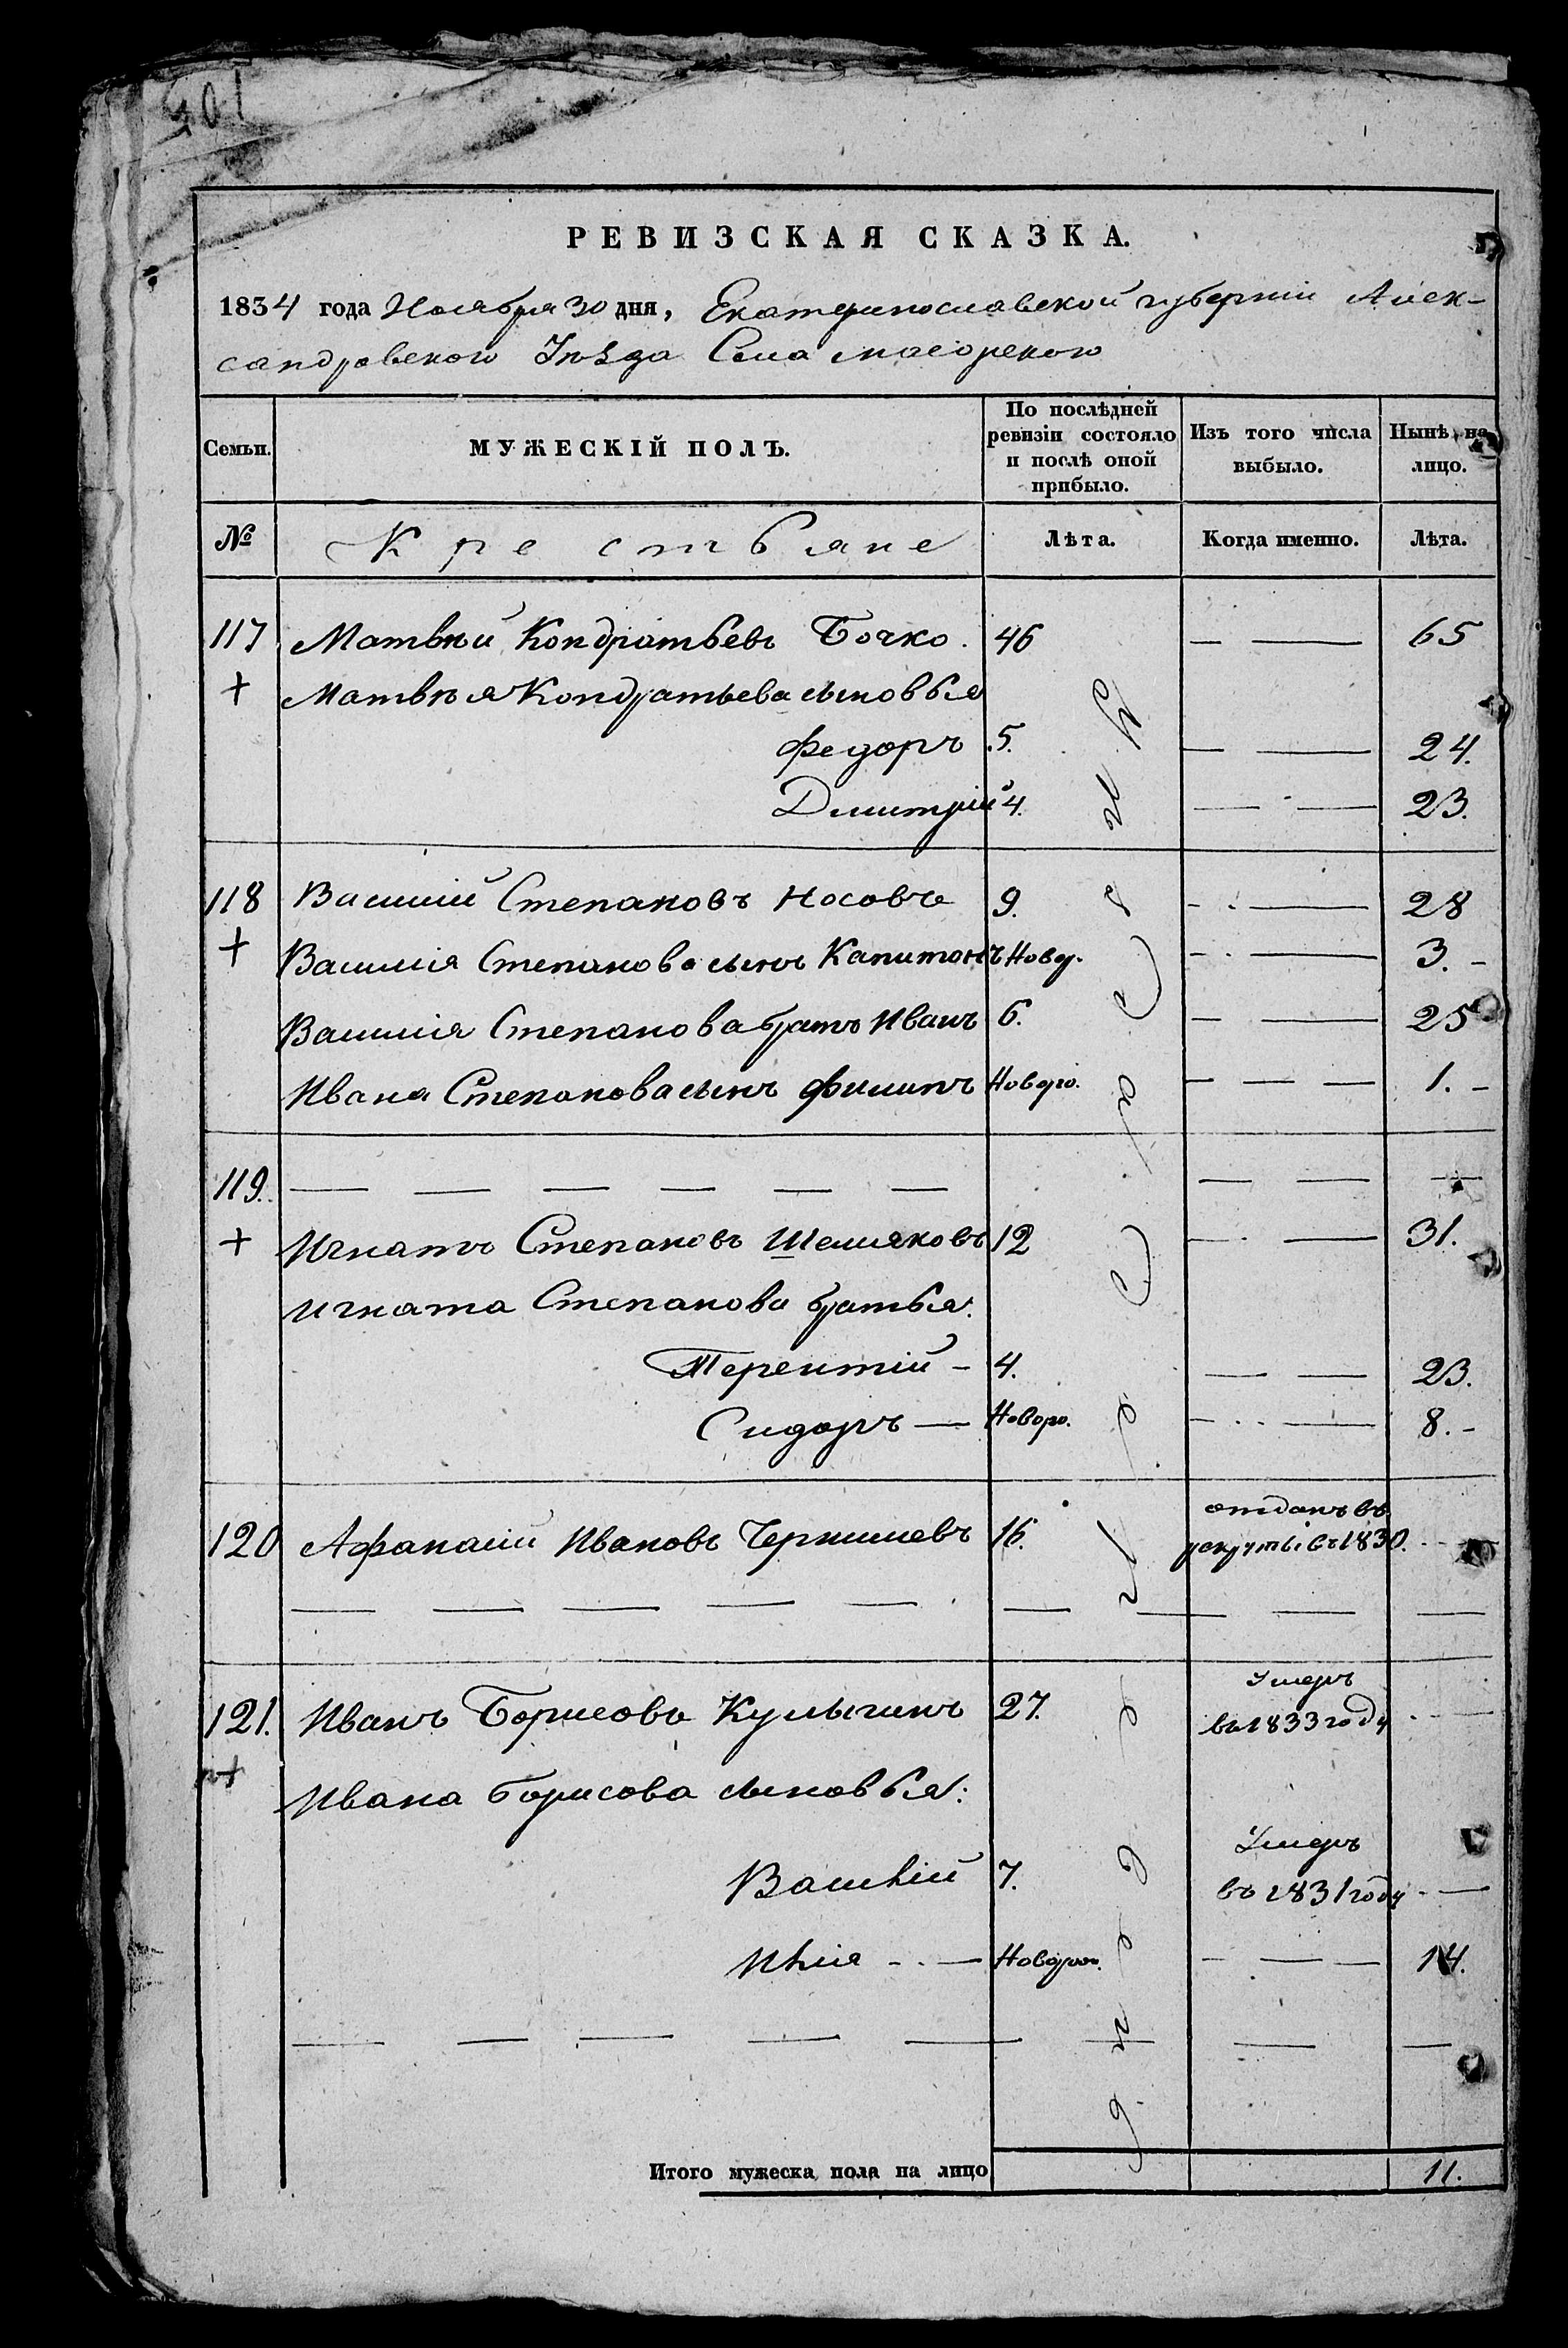 РЕВИЗСКАЯ СКАЗКА.
1834 года Ноября 30 дня, Екатеринославской губерніи Алек-
сандровского Уѣзда Села маеорского
Семьи.
МУЖЕСКІЙ ПОЛЪ.
По послѣдней ревизіи состояло и послѣ оной прибыло.
Изъ того числа выбыло.
Нынѣ на лицо.
№ Крестьяне Лѣта. Когда именно. Лѣта.
117 Матвѣй Кондратьевъ Бочко. 46 65
+ Матвѣя Кондратьева сыновья
Федоръ 5. 24.
Дмитрій 4. 23.
118 Василий Степановъ Носовъ 9. 28
+ Василия Степанова сынъ Капитонъ Новор. 3.
Василия Степанова братъ Иванъ 6. 25
Ивана Степанова сынъ Филипъ Новоро. 1.
119.
+ Игнатъ Степановъ Шемяковъ 12 31.
Игната Степанова братья.
Терентій 4. 23.
Сидоръ Новоро. 8.
120 Афанасій Ивановъ Чернышевъ 16. отданъ въ
рекруты въ 1830.
121. Иванъ Борисовъ Кулыгинъ 27. Умеръ
въ 1833 году
+ Ивана Борисова сыновья:
Василій 7. Умеръ
въ 1831 году
Илья Новорож. 14.
Итого мужеска пола на лицо 11.